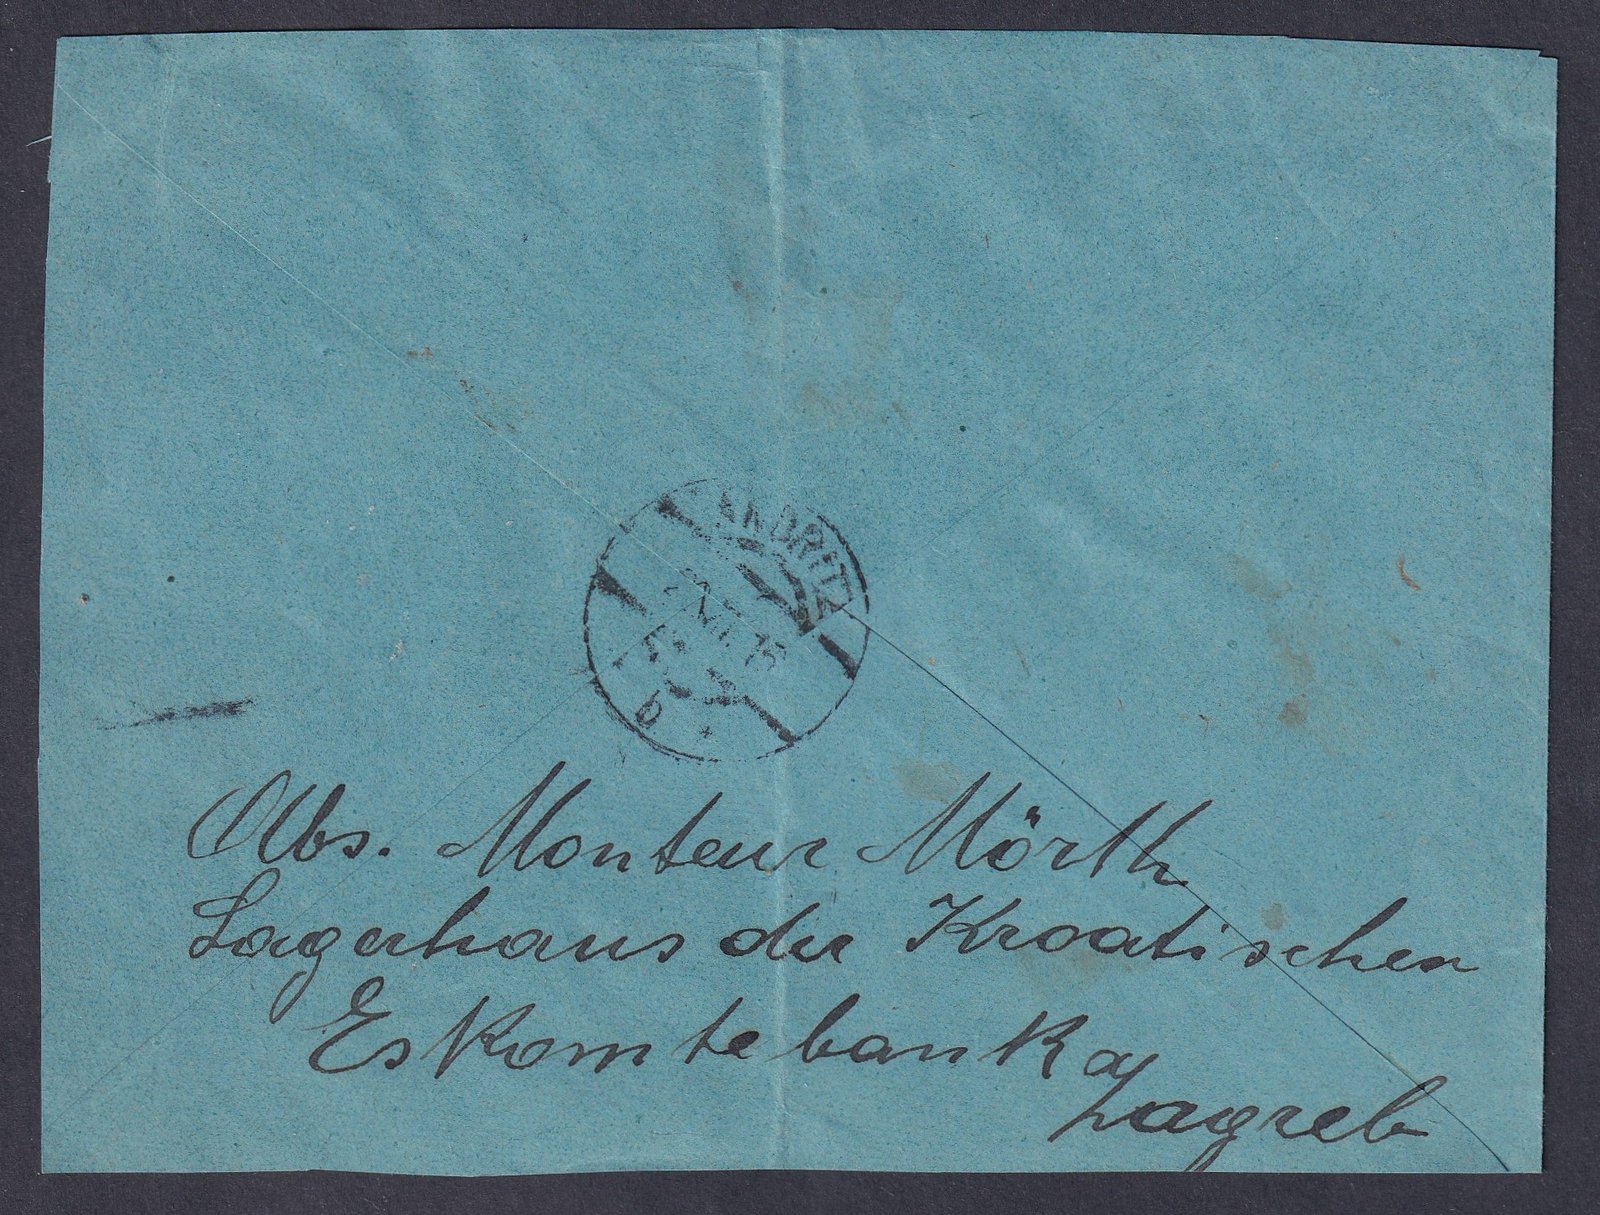 ANDRITZ
XII. 15
b *
Abs. Monteur Mörth
Lagerhaus der Kroatischen
Eskomtebank
Zagreb